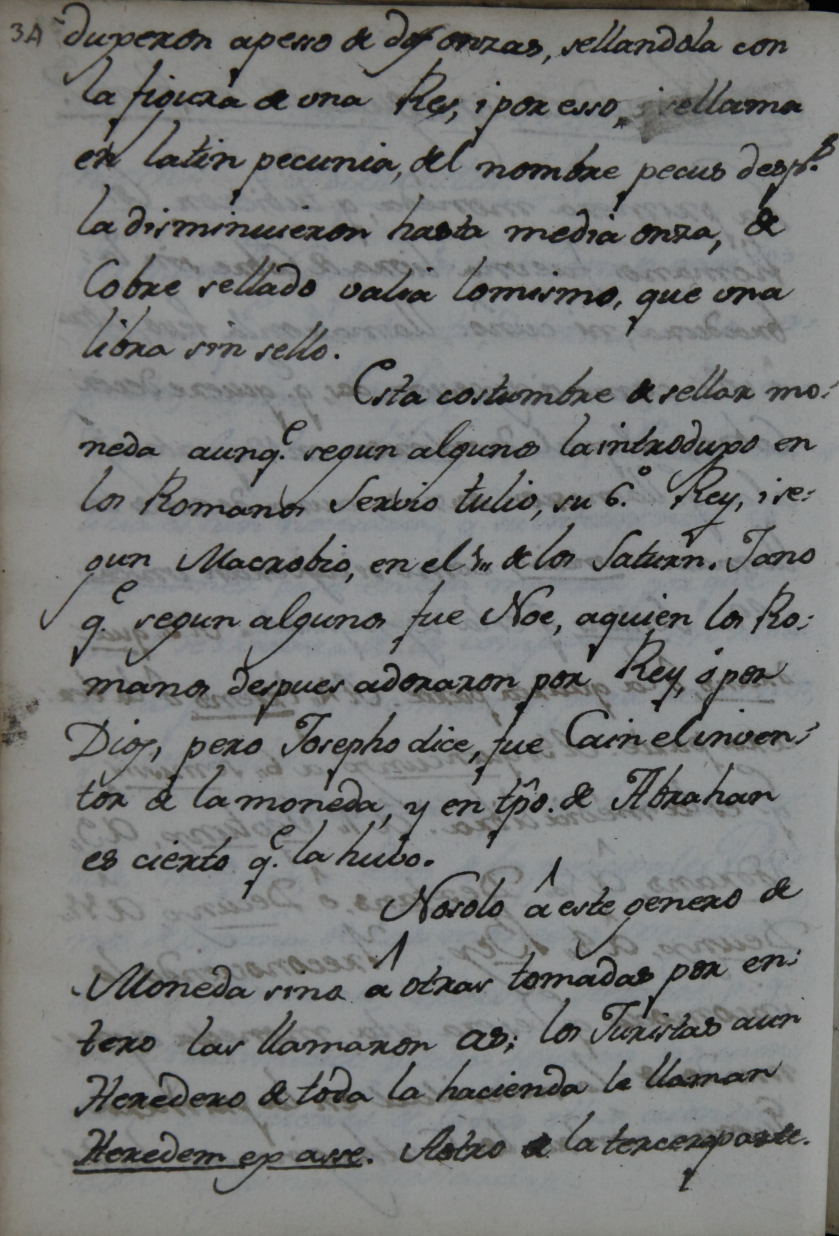 34 duxeron apesso de dos onzas, sellandola con
la figura de una Res, i por esso, i sellama
en latin pecunia, del nombre pecus desp.s
la disminuieron hasta media onza, de
Cobre sellado valia lo mismo, que una
libra sin sello.
Esta costumbre de sellar mo:
neda aunq.e segun algunos la introduxo en
los Romanos Servio tulio, su 6.o Rey, i se:
gun Macrobio, en el 1.. de los Saturn. Jano
q.e segun algunos fue Noe, aquien los Ro:
manos despues adoraron por Rey, ó por
Dios, pero Josepho dice, fue Cain el inven:
tor de la moneda, y en tpo. de Abrahan
es cierto q.e la hubo.
No solo â este genero de
Moneda sino â otras tomadas por en:
tero las llamaron as; los Juristas aun
Heredero de toda la hacienda le llaman
Heredem ex asse. Aotro de la terceraparte.